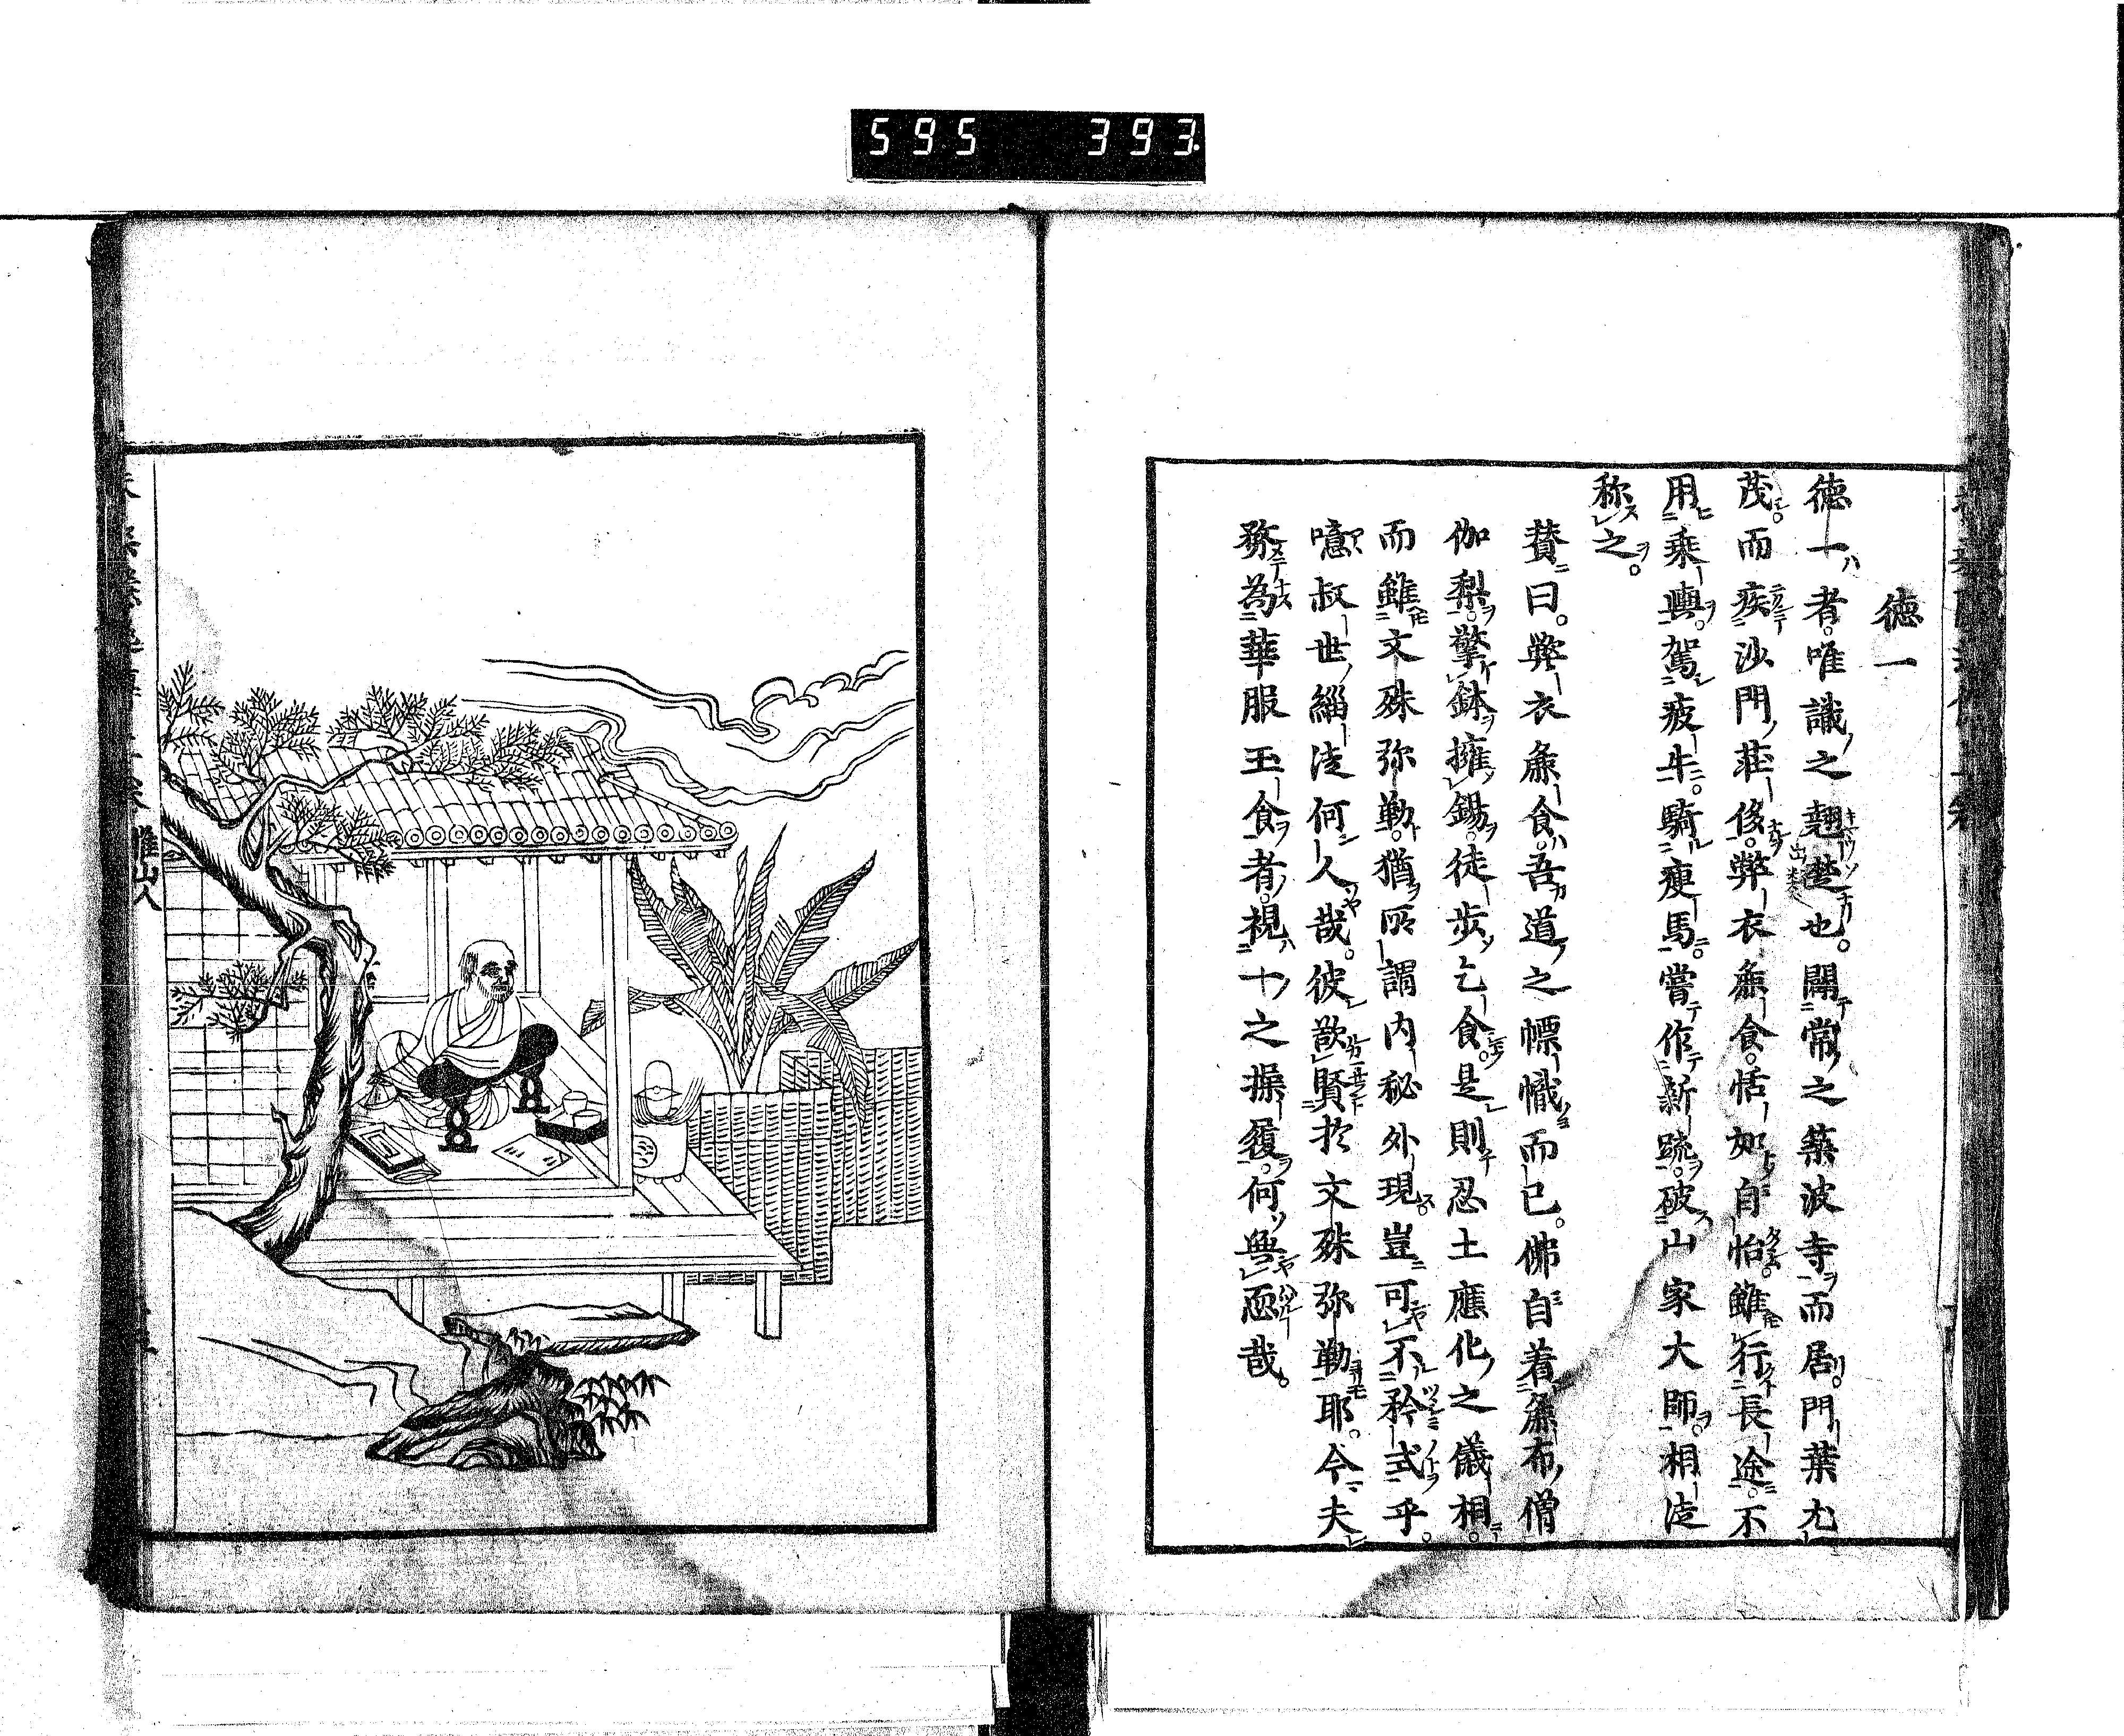 595 393
徳一
徳一者。唯識之翹楚也。闢常之築波寺而居。門葉尤
茂。而疾沙門荘侈。弊衣麁食。恬如自怡。雖行長途。不
用乘輿。駕疲牛。騎瘦馬。嘗作新䟽。破山家大師。相迠
称之。
賛曰。弊衣麁食。吾道之幖幟而已。佛自着麁布僧
伽梨。擎鉢擁錫。徒步乞食。是則忍土應化之儀相。
而雖文殊弥勒。猶所謂内秘外現。豈可不矜式乎。
噫叔世緇迠何人哉。彼欲賢於文殊弥勒耶。今夫
務為華服玉食者。視十之操履。何無恧哉。
雖山人